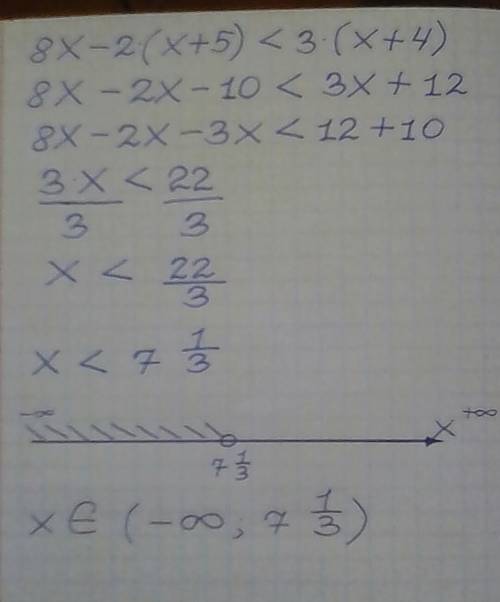 8x-2·(x+5) < 3·(x+4)
8x - 2x - 10 < 3x + 12
8x - 2x - 3x < 12 + 10
3·x/3 < 22/3
x < 22/3
x < 7 1/3
-∞ 7 1/3 x +∞
x ∈ (-∞; 7 1/3)